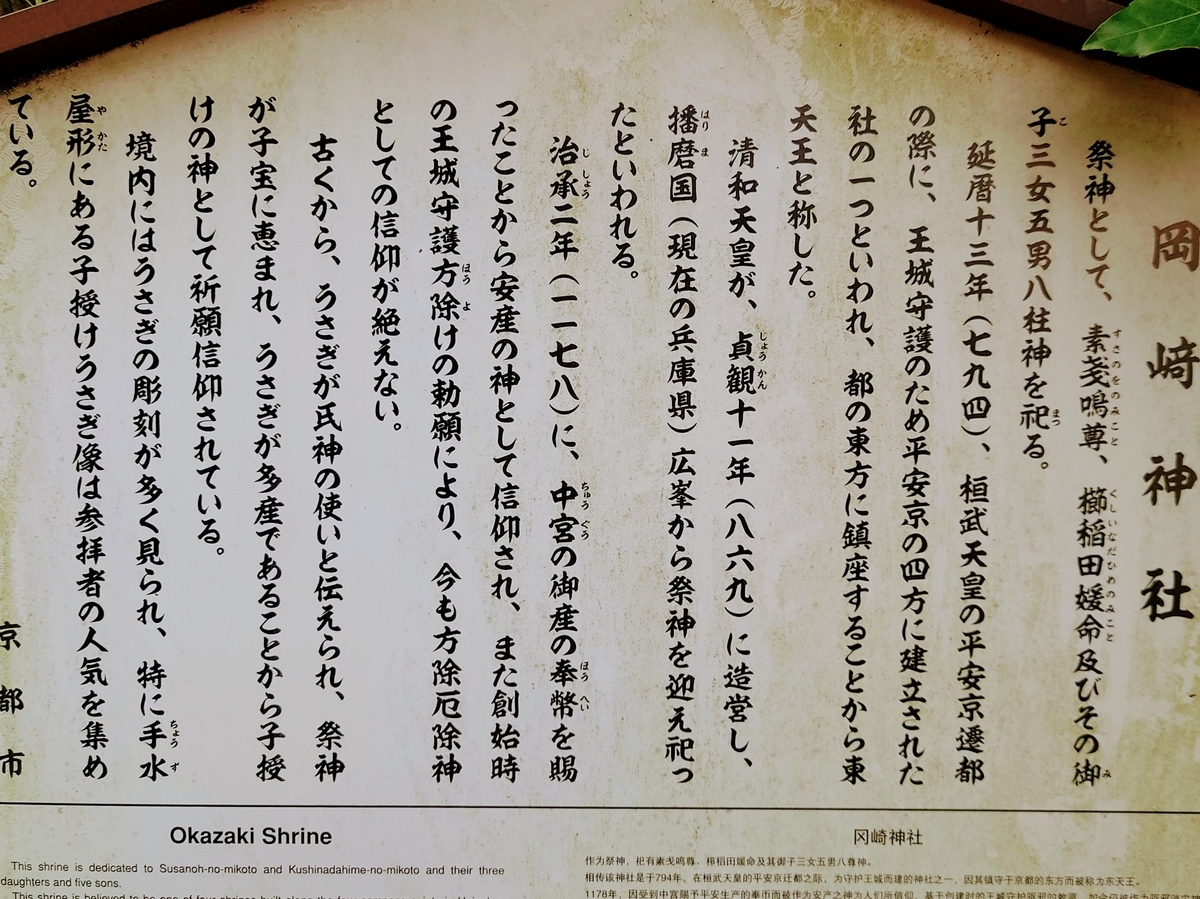 岡﨑神社
祭神として、素戔嗚尊、櫛稲田媛命及びその御
子三女五男八柱神を祀る。
延暦十三年（七九四）、桓武天皇の平安京遷都
の際に、王城守護のため平安京の四方に建立された
社の一つといわれ、都の東方に鎮座することから東
天王と称した。
清和天皇が、貞観十一年（八六九）に造営し、
播磨国（現在の兵庫県）広峯から祭神を迎え祀っ
たといわれる。
治承二年（一一七八）に、中宮の御産の奉幣を賜
ったことから安産の神として信仰され、また創始時
の王城守護方除けの勅願により、今も方除厄除神
としての信仰が絶えない。
古くから、うさぎが氏神の使いと伝えられ、祭神
が子宝に恵まれ、うさぎが多産であることから子授
けの神として祈願信仰されている。
境内にはうさぎの彫刻が多く見られ、特に手水
屋形にある子授けうさぎ像は参拝者の人気を集め
ている。
京都市
Okazaki Shrine
This shrine is dedicated to Susanoh-no-mikoto and Kushinadahime-no-mikoto and their three
daughters and five sons.
This shrine is believed to be one of four shrines built along the
冈崎神社
作为祭神，祀有素戋鸣尊、栉稻田媛命及其御子三女五男八尊神。
相传该神社是于794年，在桓武天皇的平安京迁都之际，为守护王城而建的神社之一，因其镇守于京都的东方而被称为东天王。
1178年，因受到中宫赐予平安生产的奉币而被作为安产之神为人们所信仰，基于创建时的王城守护驱邪的敕愿，如今仍被作为驱邪